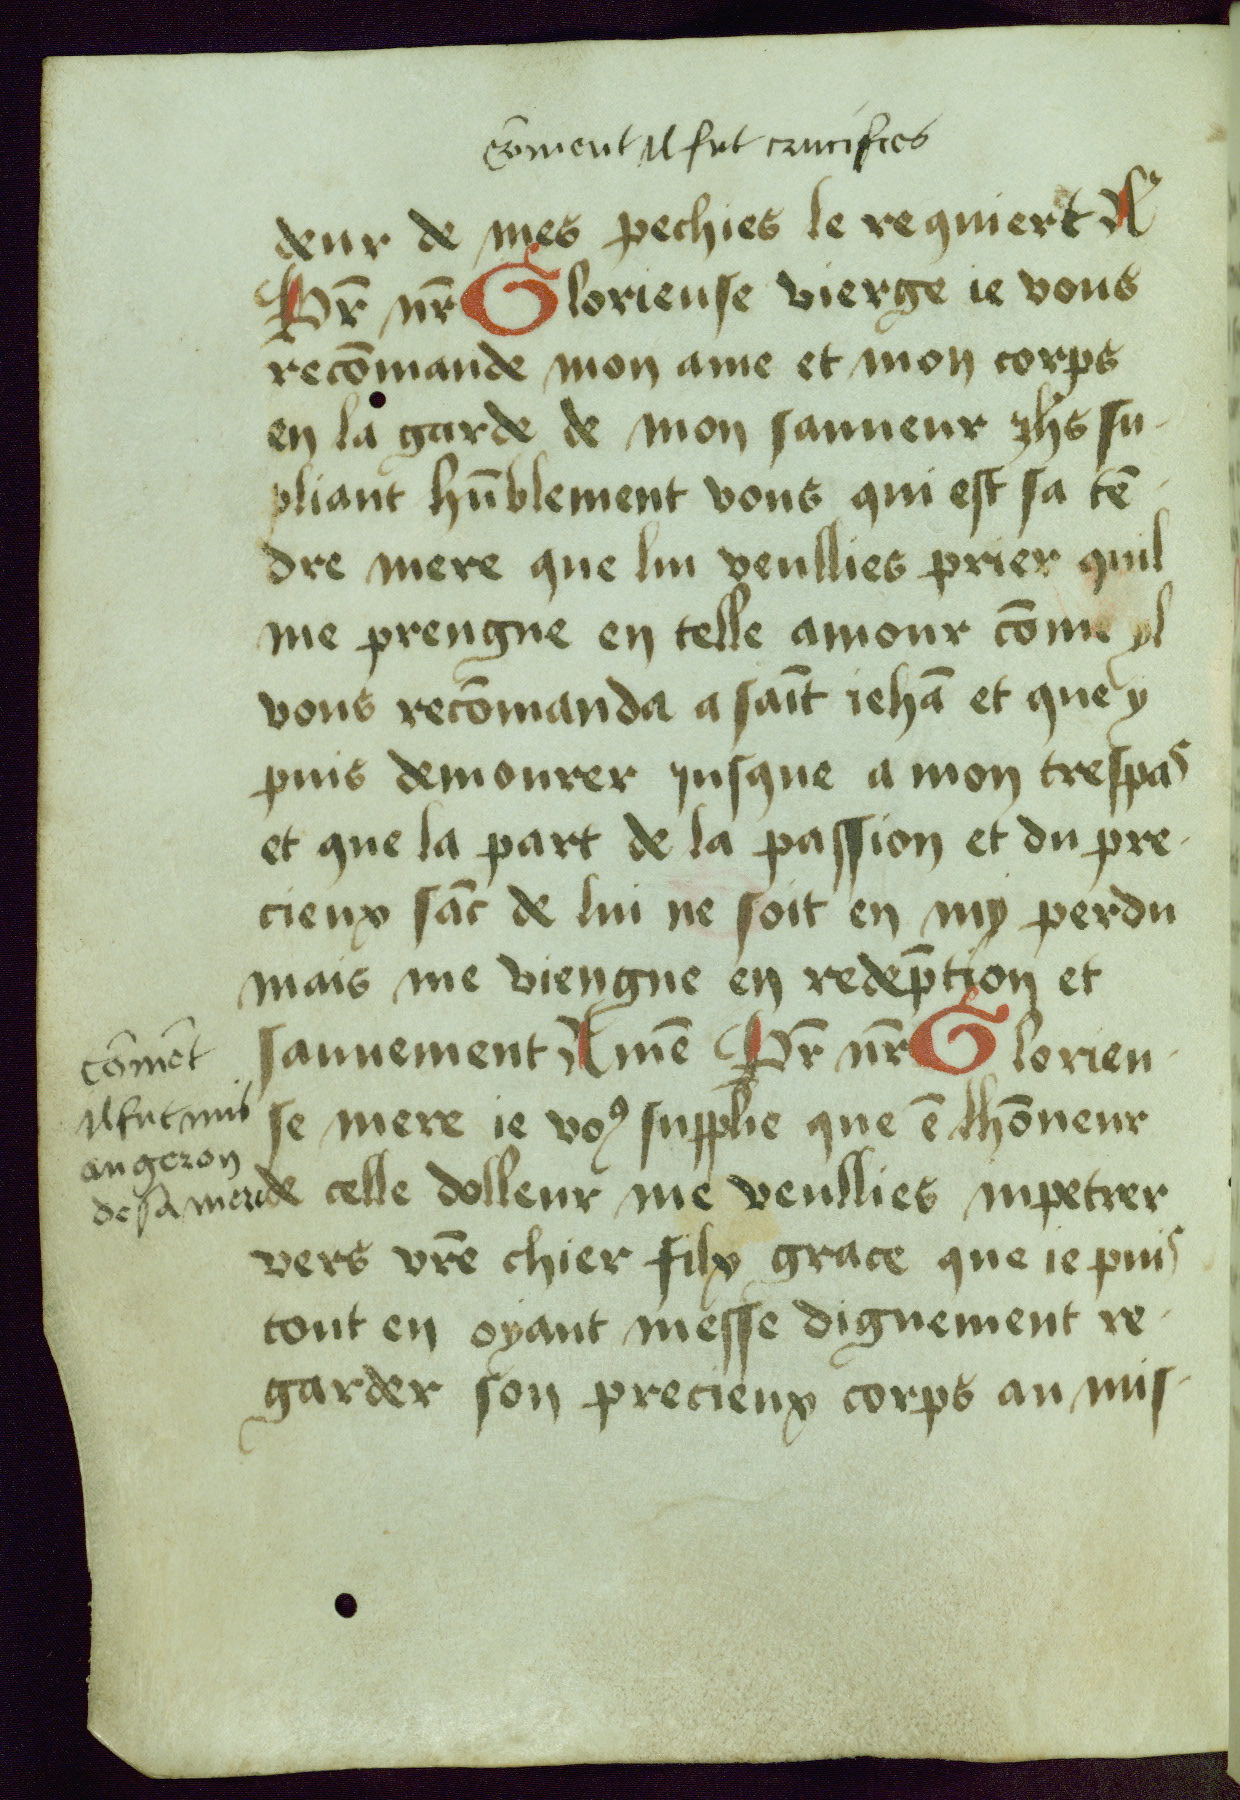 cõment il fut crucifies
deur de mes pechies le requiert A
Pr̃ nr̃ Glorieuse vierge ie vous
recõmande mon ame et mon corps
en la garde de mon sauueur ih̃s su-
pliant hũblement vous qui est sa tẽ-
dre mere que lui veullies prier quil
me prengne en telle amour cõme yl
vous recõmanda a sait̃ iehã et que y
puis demourer iusque a mon trespas
et que la part de la passion et du pre-
cieux sãc de lui ne soit en my perdu
mais me viengne en redep̃tion et
sauuement Amẽ Pr̃ nr̃ Glorieu-
cõmẽt
il fut mis
au geron
de sa mere
se mere ie voꝰ supplie que ẽ lhõneur
de celle dolleur me veullies inpetrer
vers vr̃e chier filx grace que ie puis
tout en oyant messe dignement re-
garder son precieux corps au mis-